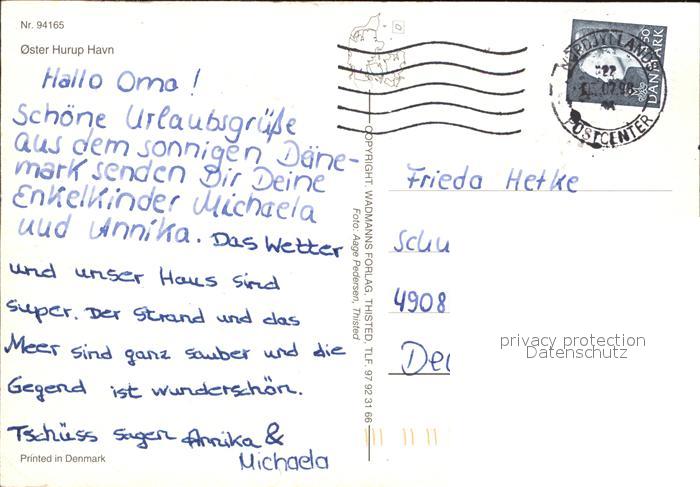 Nr. 94165
Øster Hurup Havn
Hallo Oma!
Schöne Urlaubsgrüße
aus dem sonnigen Däne-
mark senden Dir Deine
Enkelkinder Michaela
und Annika. Das Wetter
und unser Haus sind
super. Der Strand und das
Meer sind ganz sauber und die
Gegend ist wunderschön.
Tschüss sagen Annika &
Michaela
Printed in Denmark
COPYRIGHT. WADMANNS FORLAG, THISTED, TLF. 97 92 31 66
Foto: Aage Pedersen, Thisted
DANMARK
POSTCENTER
Frieda Hetke
Schu
4908
Der
privacy protection
Datenschutz